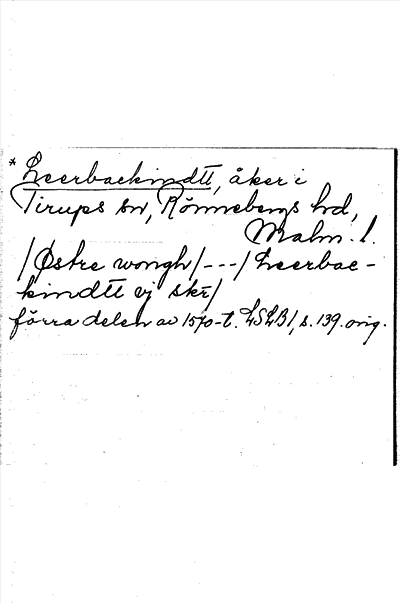 * Leerbackindtt, åker i
Tirups sn, Rönnebergs hd,
Malm. l.
/Østre wongh/---/Leerbac-
kindtt vj skr/
förra delen av 1570-t. LSLB1, s. 139. orig.